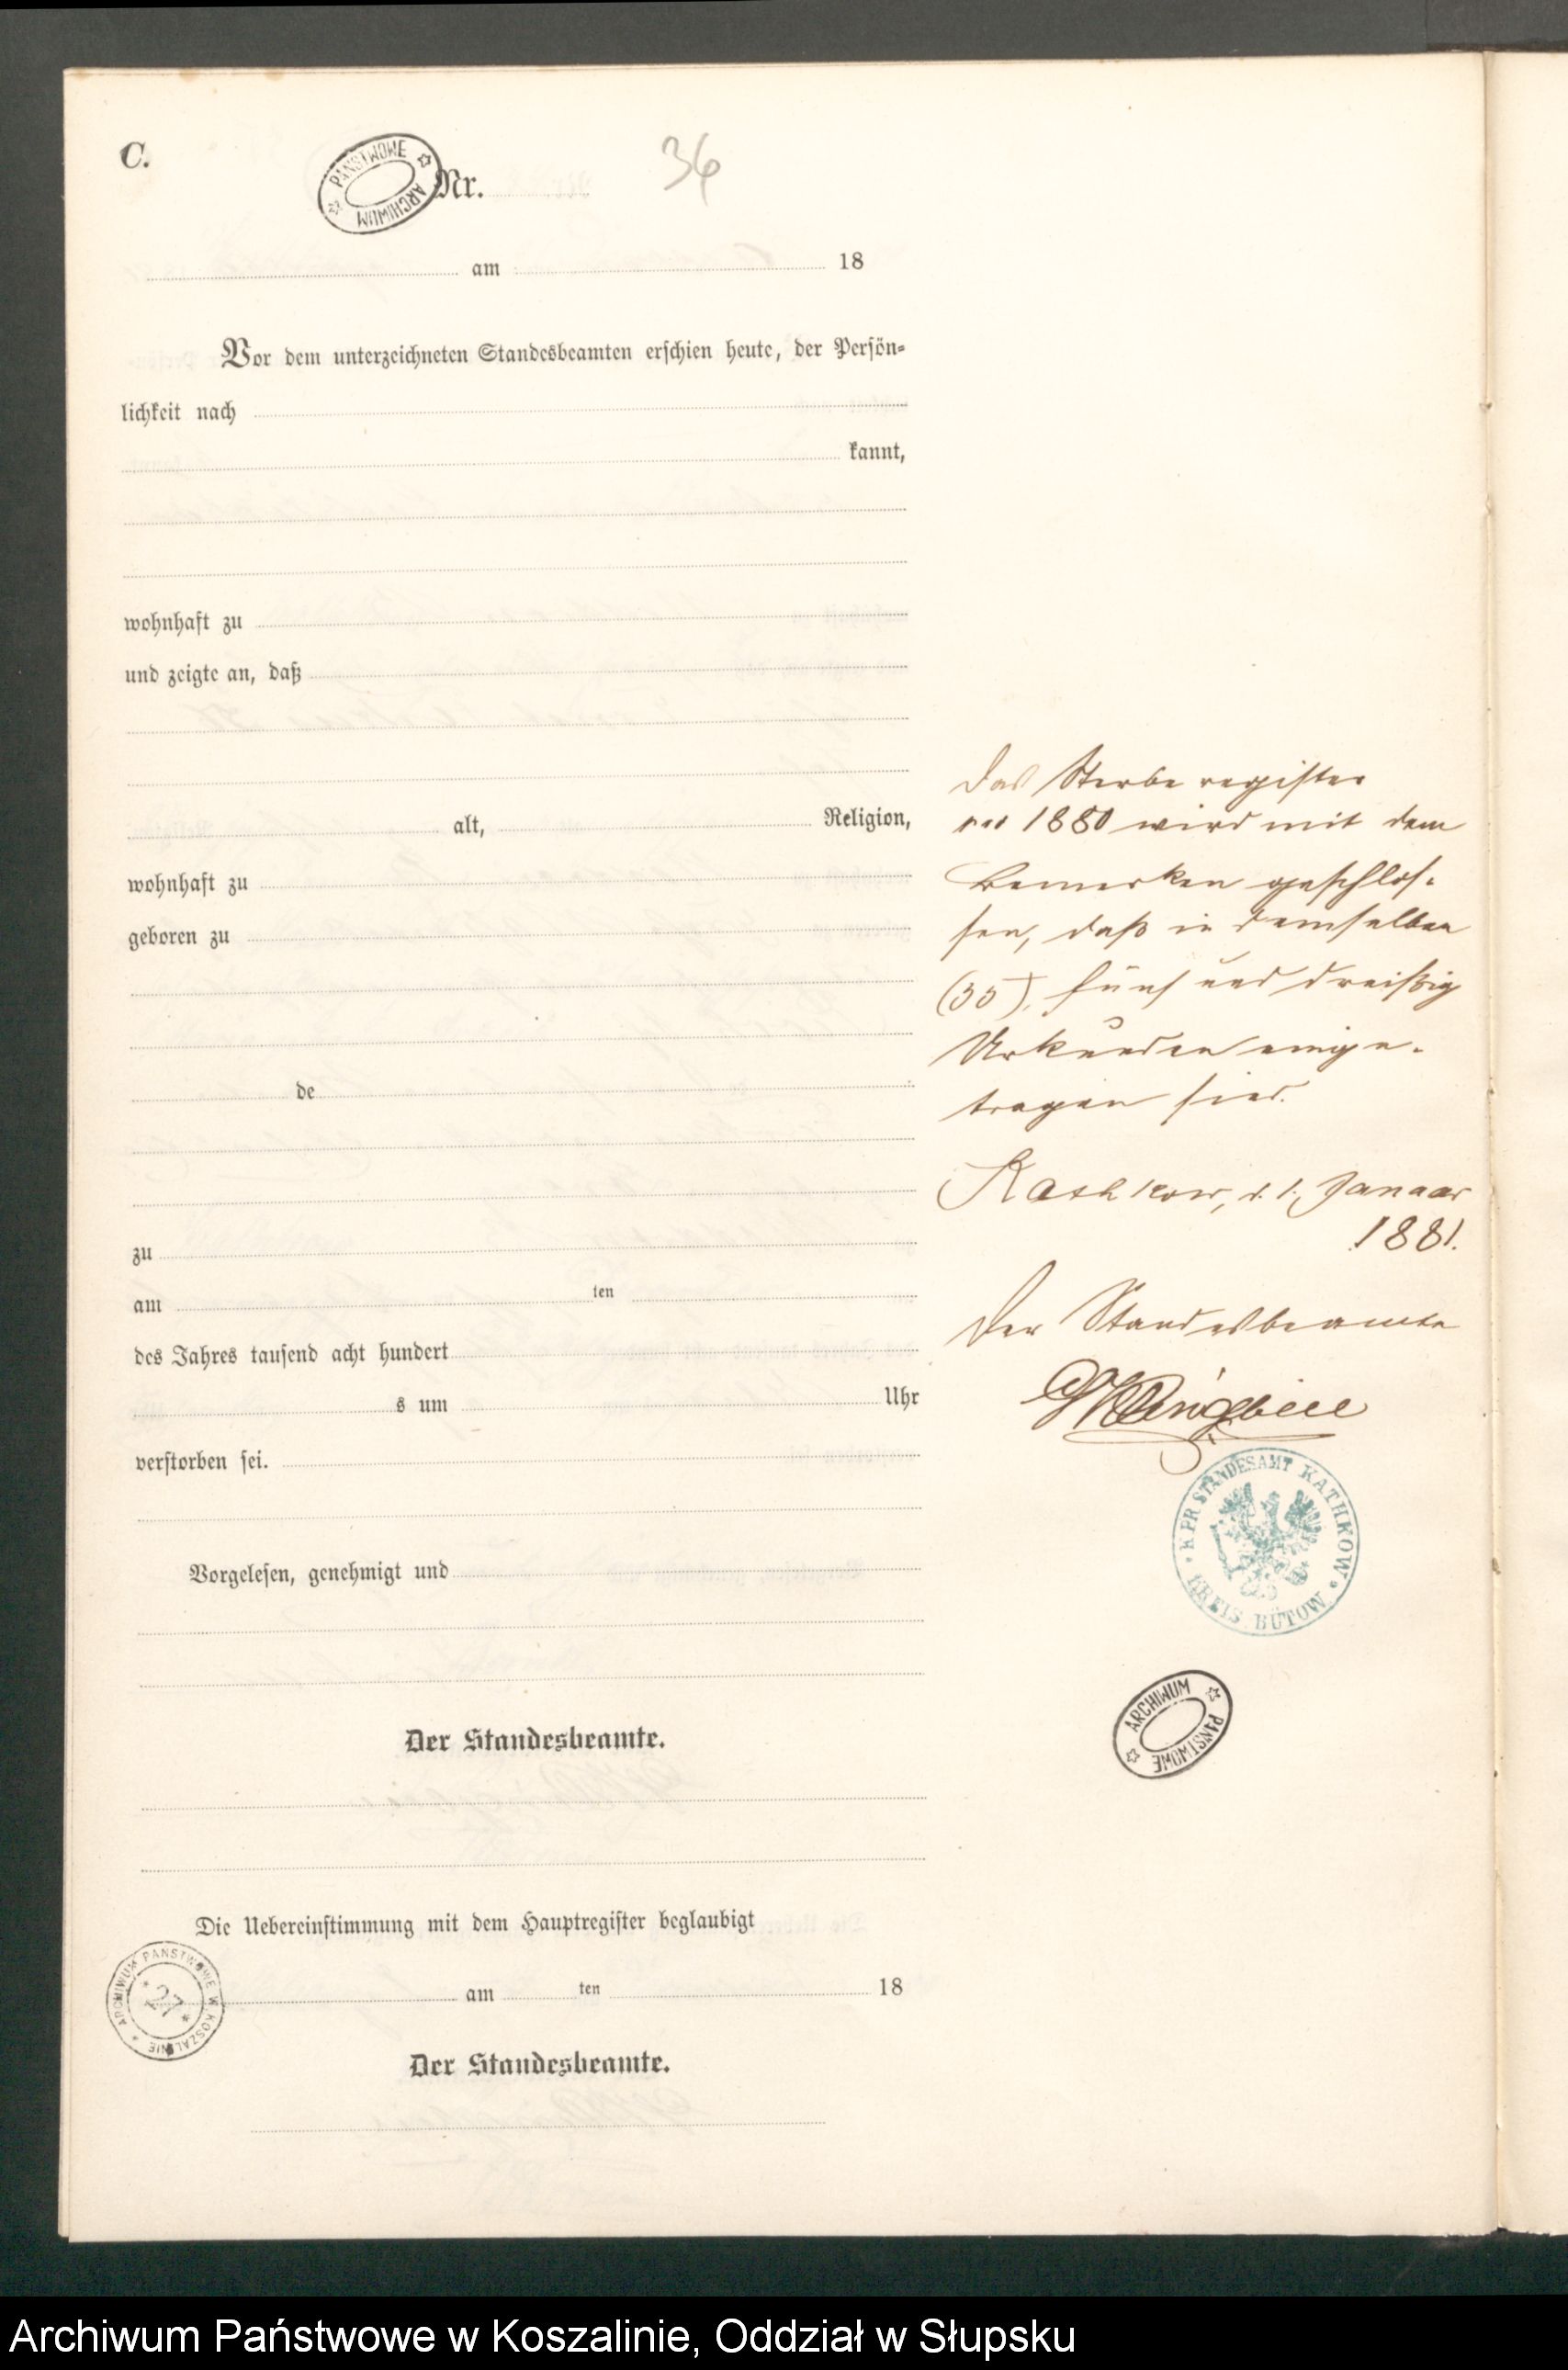 C.
PAŃSTWOWE ARCHIWUM
Nr.
36
am 18
Vor dem unterzeichneten Standesbeamten erschien heute, der Persön-
lichkeit nach
kannt,
wohnhaft zu
und zeigte an, daß
alt, Religion,
wohnhaft zu
geboren zu
de
zu
am ten
des Jahres tausend acht hundert
s um Uhr
verstorben sei.
Vorgelesen, genehmigt und
Der Standesbeamte.
Die Uebereinstimmung mit dem Hauptregister beglaubigt
am ten 18
Der Standesbeamte.
ARCHIWUM PAŃSTWOWE W KOSZALINIE
27
Das Sterberegister
pro 1880 wird mit dem
Bemerken geschlos-
sen, daß in demselben
(35), fünf und dreißig
Urkunden einge-
tragen sind.
Kathkow, d. 1. Januar
1881.
Der Standesbeamte
K. PR. STANDESAMT KATHKOW
KREIS BÜTOW
ARCHIWUM PAŃSTWOWE
Archiwum Państwowe w Koszalinie, Oddział w Słupsku